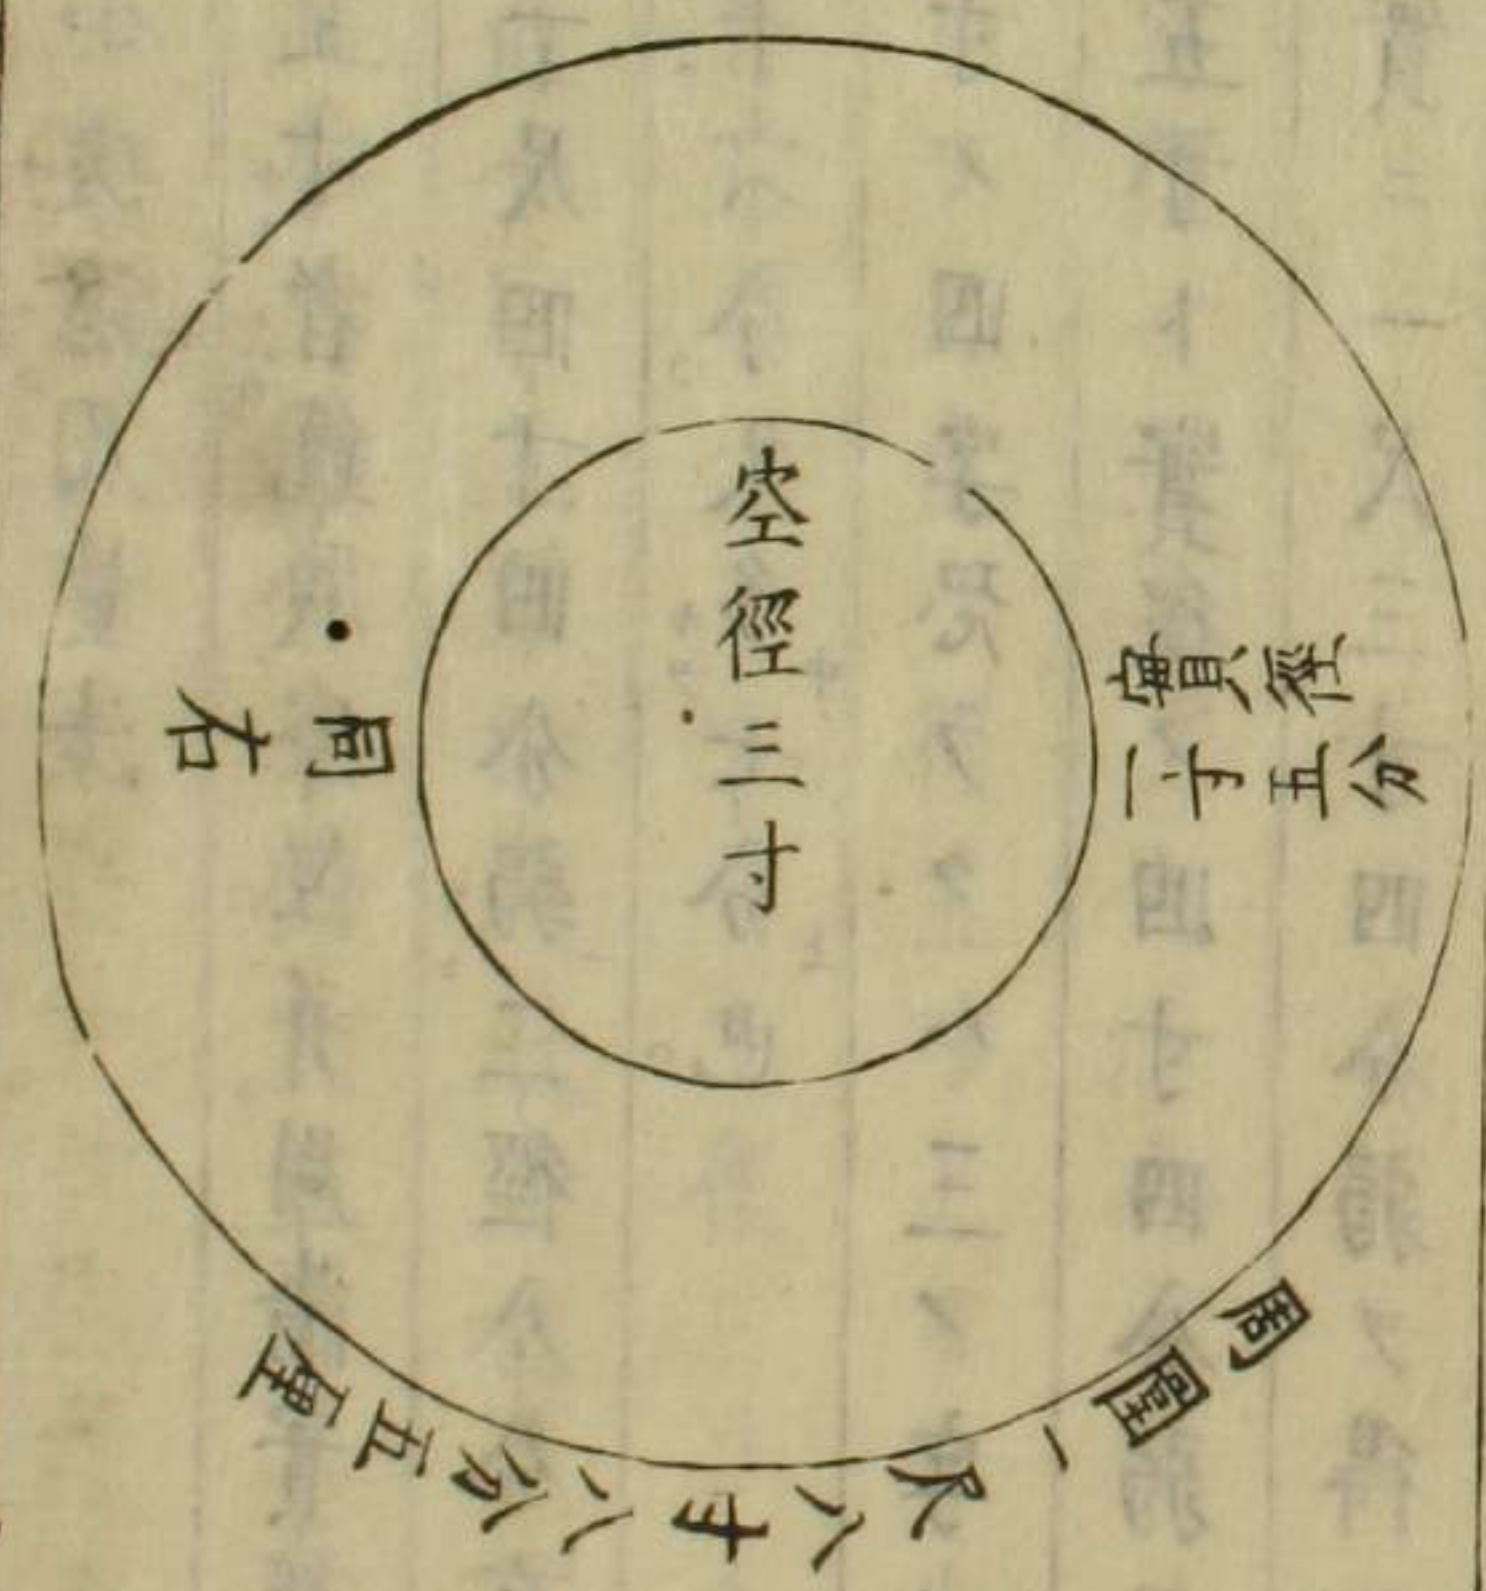 空徑三寸
實徑
一寸五分
同右
周圍一尺八寸八分五厘